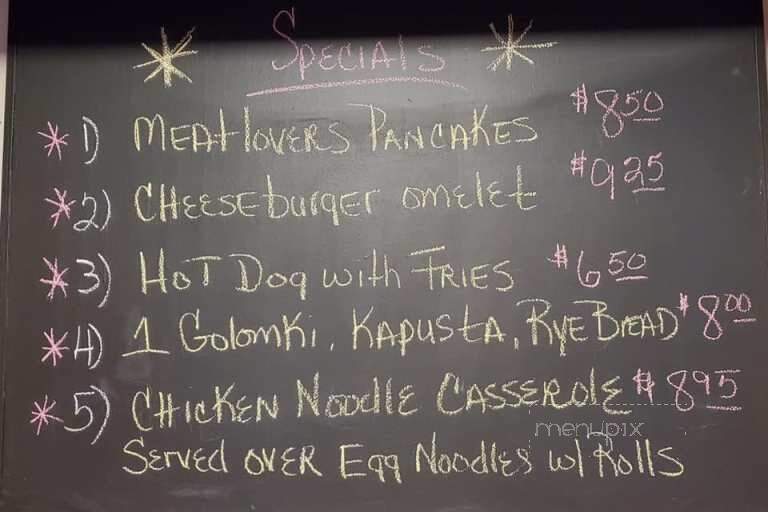 * Specials *
* 1) MEATLOVERS PANCAKES $8.50
* 2) CHEESEburger omelet $9.25
* 3) HOT Dog with FRIES $6.50
* 4) 1 Golomki, KAPUSTA, RyE BREAD $8.00
* 5) CHICKEN Noodle CASSEROLE $8.95
SERVEd OVER Egg Noodles w/ Rolls
menupix